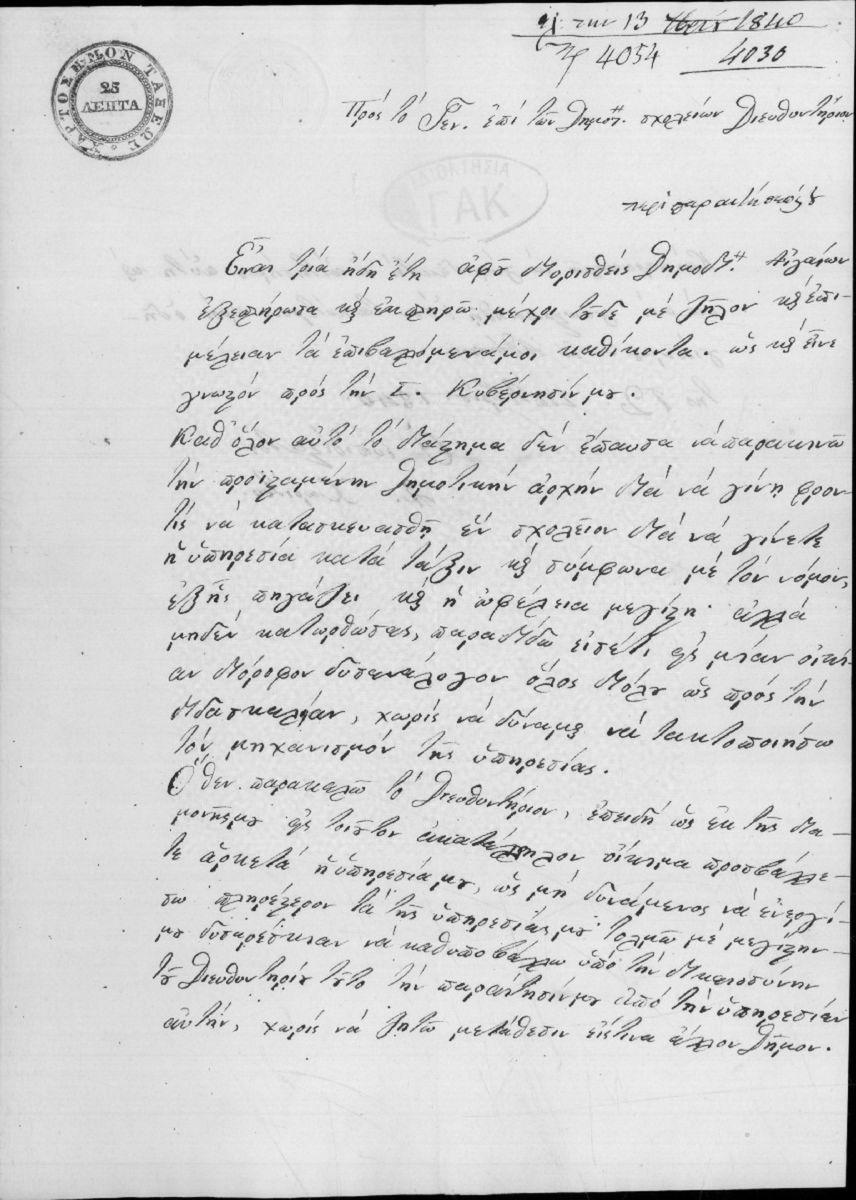 τὴν 13 1840
4054 4030
ΧΑΡΤΟΣΗΜΟΝ ΤΑΞΕΩΣ
25
ΛΕΠΤΑ
ΓΑΚ
Πρὸς τὸ Γεν. ἐπὶ τῶν Δημοτ. σχολείων Διευθυντήριον
περὶ παραιτήσεώς μου
Εἶναι τρία ἤδη ἔτη ἀφοῦ διορισθεὶς Δημοδ. Αἰγαίων
ἐξεπλήρωσα καὶ ἐκπληρῶ μέχρι τοῦδε μὲ ζῆλον καὶ ἐπι-
μέλειαν τὰ ἐπιβαλλόμενά μοι καθίκοντα. ὡς καὶ εἶνε
γνωστὸν πρὸς τὴν Σ. Κυβέρνησίν μου.
Καθ' ὅλον αὐτὸ τὸ διάστημα δὲν ἔπαυσα νὰ παρακινῶ
τὴν προϊσταμένην δημοτικὴν ἀρχὴν διὰ νὰ γίνῃ φρον-
τὶς νὰ κατασκευασθῇ ἓν σχολεῖον διὰ νὰ γίνετε
ἡ ὑπηρεσία κατὰ τάξιν καὶ σύμφωνα μὲ τὸν νόμον,
ἐξ ἧς πηγάζει καὶ ἡ ὠφέλεια μεγίστη. ἀλλὰ
μηδὲν κατωρθώσας, παραδίδω εἰσέτι εἰς μίαν οἰκί-
αν διόροφον δυσανάλογον ὅλος διόλου ὡς πρὸς τὴν
διδασκαλίαν, χωρὶς νὰ δύναμαι νὰ τακτοποιήσω
τὸν μηχανισμὸν τῆς ὑπηρεσίας.
Ὅθεν παρακαλῶ τὸ Διευθυντήριον, ἐπειδὴ ὡς ἐκ τῆς δια-
μονῆς μου εἰς τοιοῦτον ἀκατάλληλον οἴκημα προσβάλλε-
τε ἀρκετὰ ἡ ὑπηρεσία μου, ὡς μὴ δυνάμενος νὰ ἐνεργή-
σω πληρέστερον τὰ τῆς ὑπηρεσίας μου τολμῶ μὲ μεγίστην
μου δυσαρέσκιαν νὰ καθυποβάλλω ὑπὸ τὴν δικαιοσύνην
τοῦ Διευθυντηρίου τούτου τὴν παραίτησίν μου ἀπὸ τὴν ὑπηρεσίαν
αὐτήν, χωρὶς νὰ ζητῶ μετάθεσιν εἰς τινα ἄλλον Δῆμον.